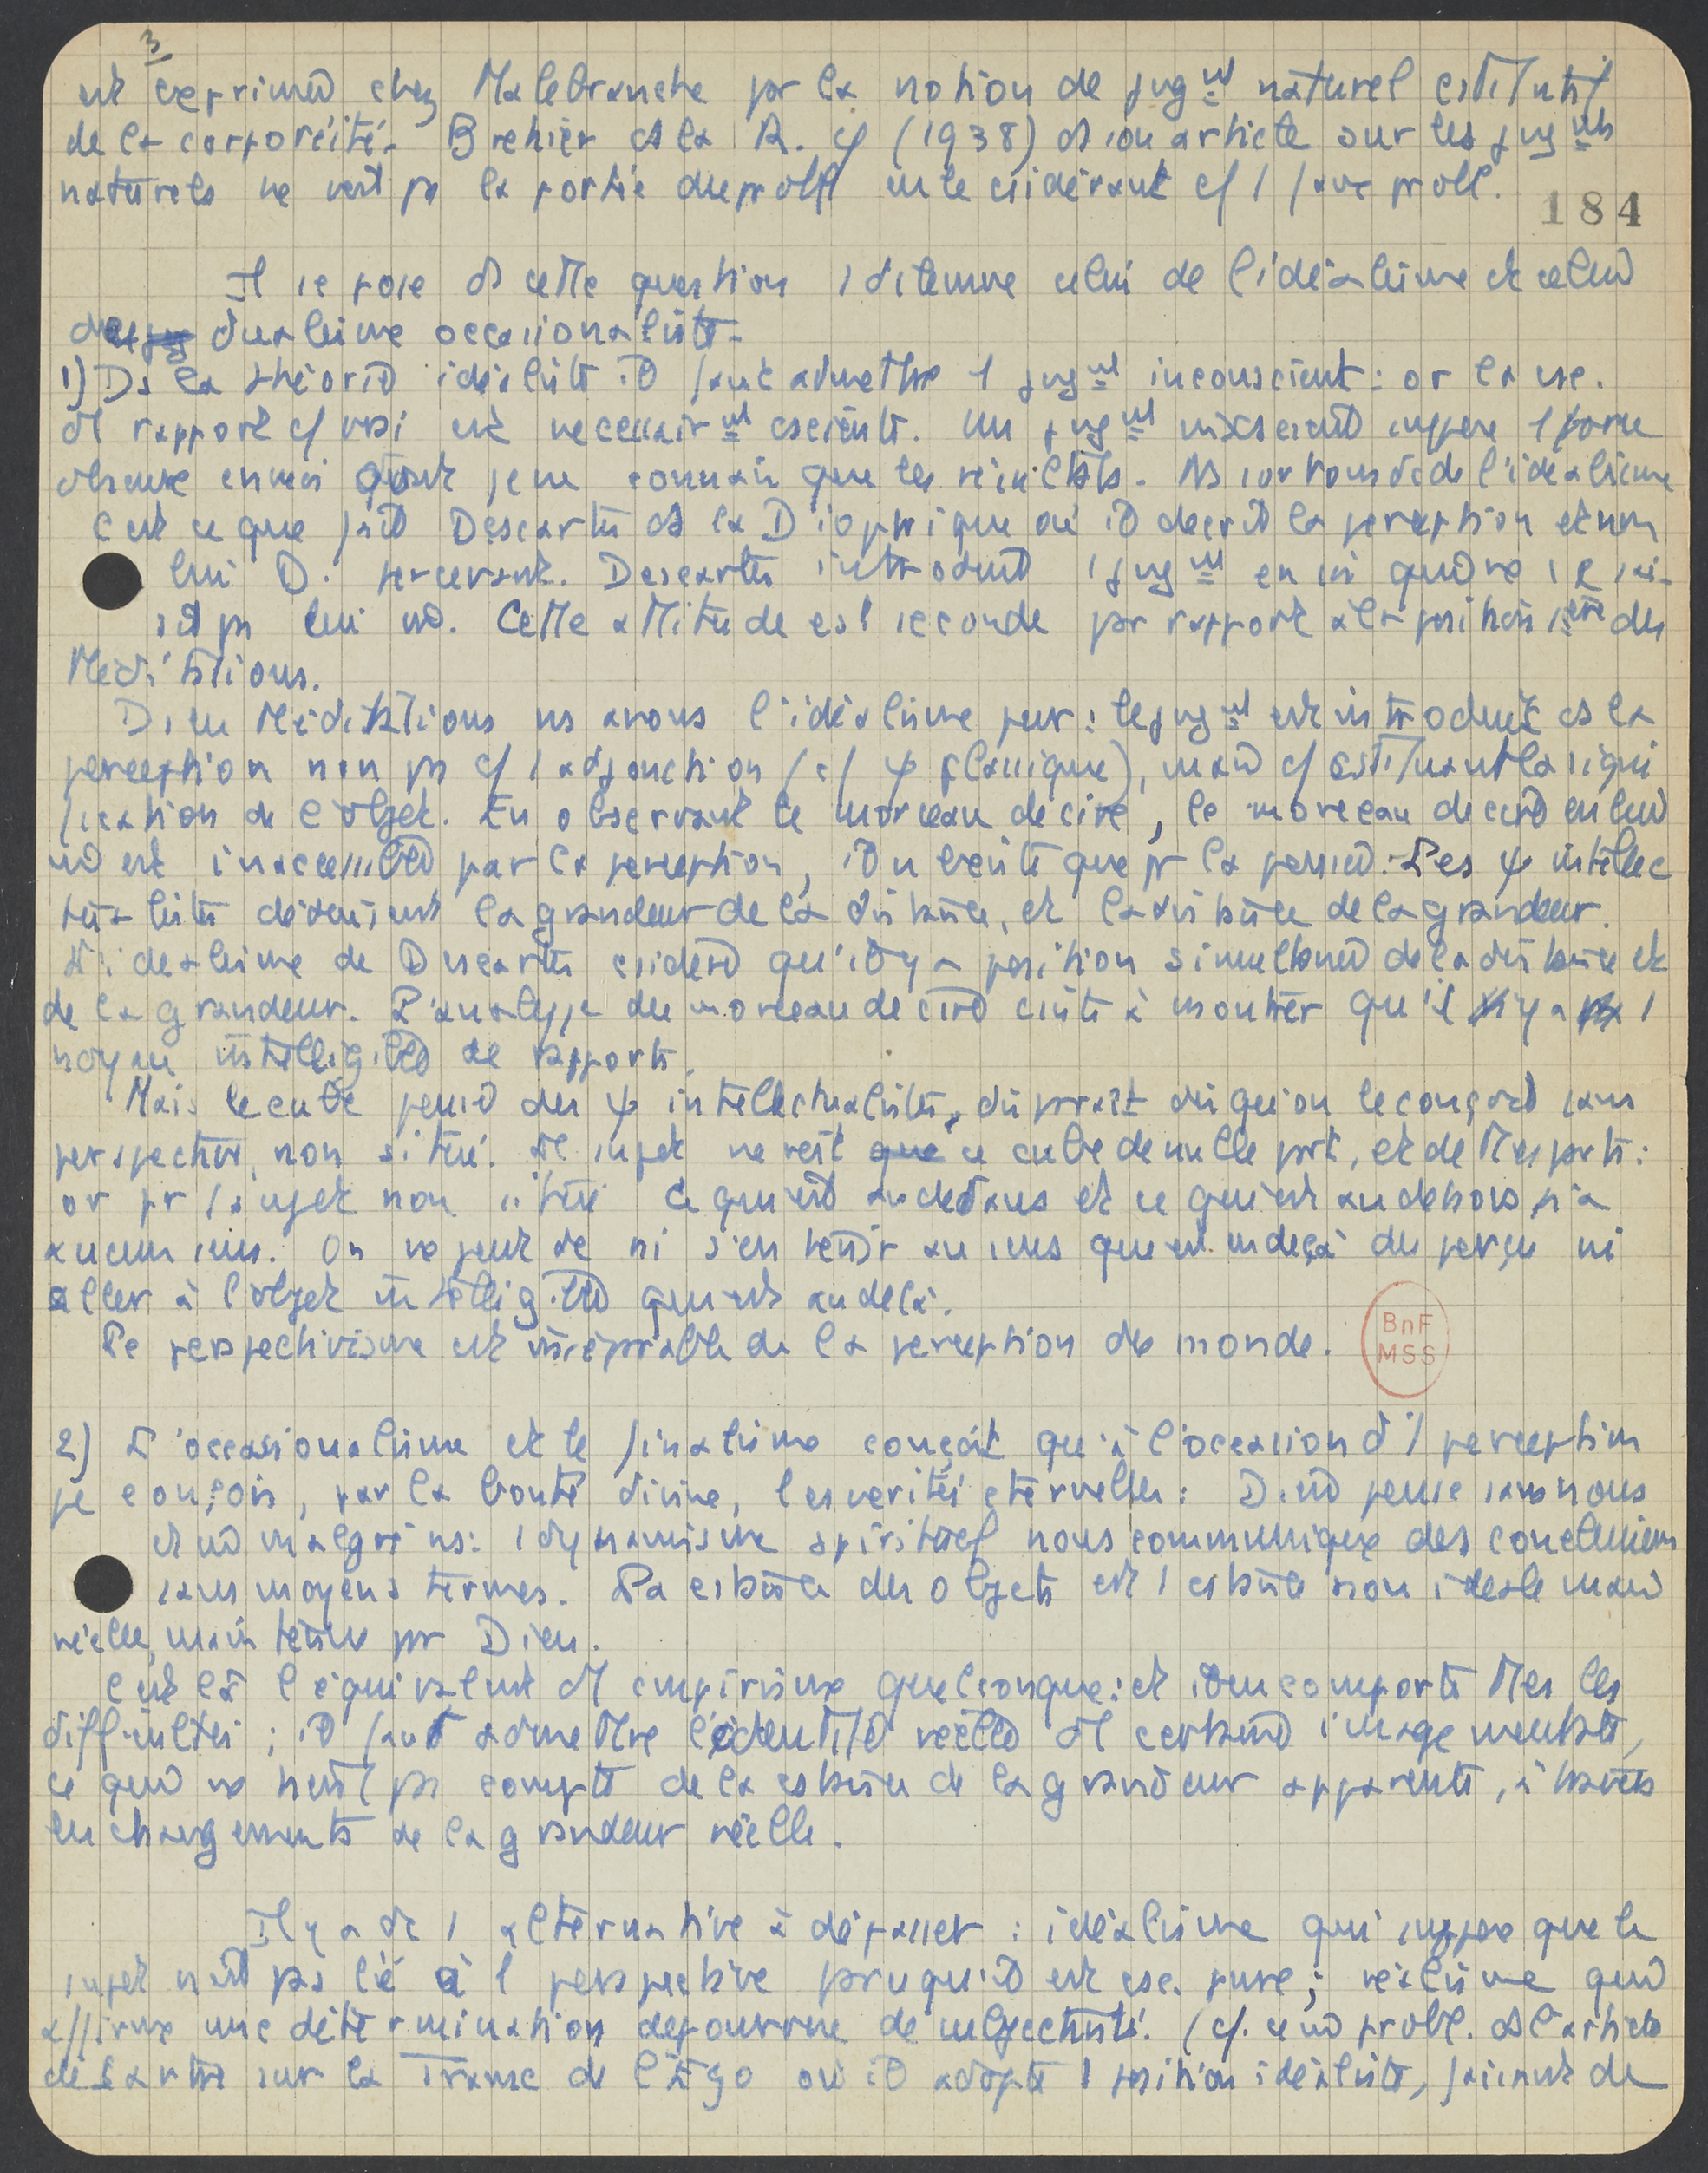 3
est exprimé chez Malebranche par la notion de jugmt naturel cstitutif
de la corporéité. Brehier ds la R. φ (1938) ds son article sur les jugmts
naturels ne voit pas la portée du probl en le csidérant c/ 1 faux probl.
184
Il se pose ds cette question 1 dilemme celui de l'idéalisme et celui
du dualisme occasionaliste.
1) Ds la théorie idéaliste il faut admettre 1 jugmt inconscient : or la csc.
d'1 rapport c/ vrai est necessairmt csciente. Un jugmt inconscient suppose 1 force
obscure en moi dont je ne connais que les résultats. Ns sortons dc de l'idéalisme
c'est ce que fait Descartes ds la Dioptrique où il decrit la perception et non
lui D. percevant. Descartes introduit 1 jugmt en soi qui ne se sai-
sit pas lui m. Cette attitude est seconde par rapport à la position 1ère des
Méditations.
Ds les Méditations ns avons l'idéalisme pur : le jugmt est introduit ds la
perception non pas c/ 1 adjonction (c/ ψ classique), mais c/ cstituant la signi
fication de l'objet. En observant le morceau de cire, le morceau de cire en lui
m est inaccessible par la perception, il n'existe que pr la pensée. Les ψ intellec
tualistes déduisent la grandeur de la distance, et la distance de la grandeur.
L'idéalisme de Descartes csidère qu'il y a position simultanée de la distance et
de la grandeur. L'analyse du morceau de cire csiste à montrer qu'il y a 1
noyau intelligible de rapports.
Mais le cube pensé des ψ intellectualistes, disparait dès qu'on le conçoit sans
perspective, non situé. Le sujet ne voit ce cube de nulle part, et de ttes parts :
or pr 1 sujet non situé ce qui est au dedans et ce qui est au dehors n'a
aucun sens. On ne peut dc ni s'en tenir au sens qui est en deçà du perçu ni
aller à l'objet intelligible qui est au delà.
Le perspectivisme est inséparable de la perception du monde.
BnF
MSS
2) L'occasionalisme et le finalisme conçoit qu'à l'occasion d'1 perception
je conçois, par la bonté divine, les vérités éternelles : Dieu pense sans nous
et m malgré ns : 1 dynamisme spirituel nous communique des conclusions
sans moyens termes. La cstance des objets est 1 cstance non idéale mais
réelle, maintenue par Dieu.
C'est là l'équivalent d'1 empirisme quelconque : et il en comporte ttes les
difficultés ; il faut admettre l'identité réelle d'1 certaine image mentale,
ce qui ne tient pas compte de la cstance de la grandeur apparente, à travers
les changements de la grandeur réelle.
Il y a dc 1 alternative à dépasser : idéalisme qui suppose que le
sujet n'est pas lié à 1 perspective parce qu'il est csc. pure ; réalisme qui
affirme une détermination dépourvue de subjectivité. (cf. ce m probl. ds l'article
de Sartre sur la Transc de l'Ego où il adopte 1 position idéaliste, faisant de